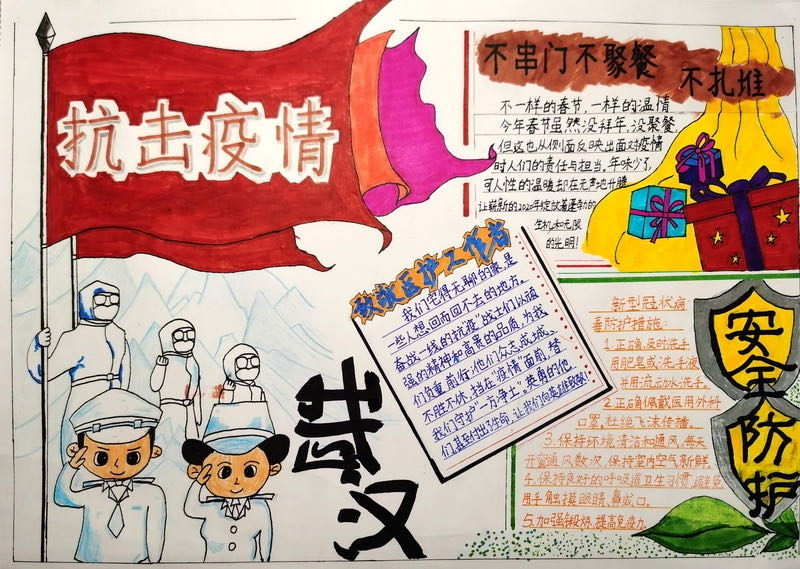 抗击疫情
不串门不聚餐
不扎堆
不一样的春节,一样的温情
今年春节虽然没拜年,没聚餐,
但这也从侧面反映出面对疫情
时人们的责任与担当。年味少了,
可人性的温暖却在无声地升腾
让崭新的2020年绽放着蓬勃的
生机和无限
的光明!
致敬医护工作者
我们觉得无聊的家,是
一些人想回而回不去的地方。
奋战一线的抗疫"战士们以顽
强的精神和高贵的品质,为我
们负重前行:他们众志成城、
不胜不休,挡在"疫情"面前,替
我们守护"一方净土"。英勇的他
们,甚至付出了生命,让我们向英雄致敬!
武汉
新型冠状病
毒防护措施:
1.正确,及时洗手
用肥皂或洗手液
并用流动水洗手。
2.正确佩戴医用外科
口罩,杜绝飞沫传播.
3.保持环境清洁和通风,每天
开窗通风数次,保持室内空气新鲜,
4.保持良好的呼吸道卫生习惯,避免
用手触摸眼睛、鼻或口。
5.加强锻炼,提高免疫力.
安全防护